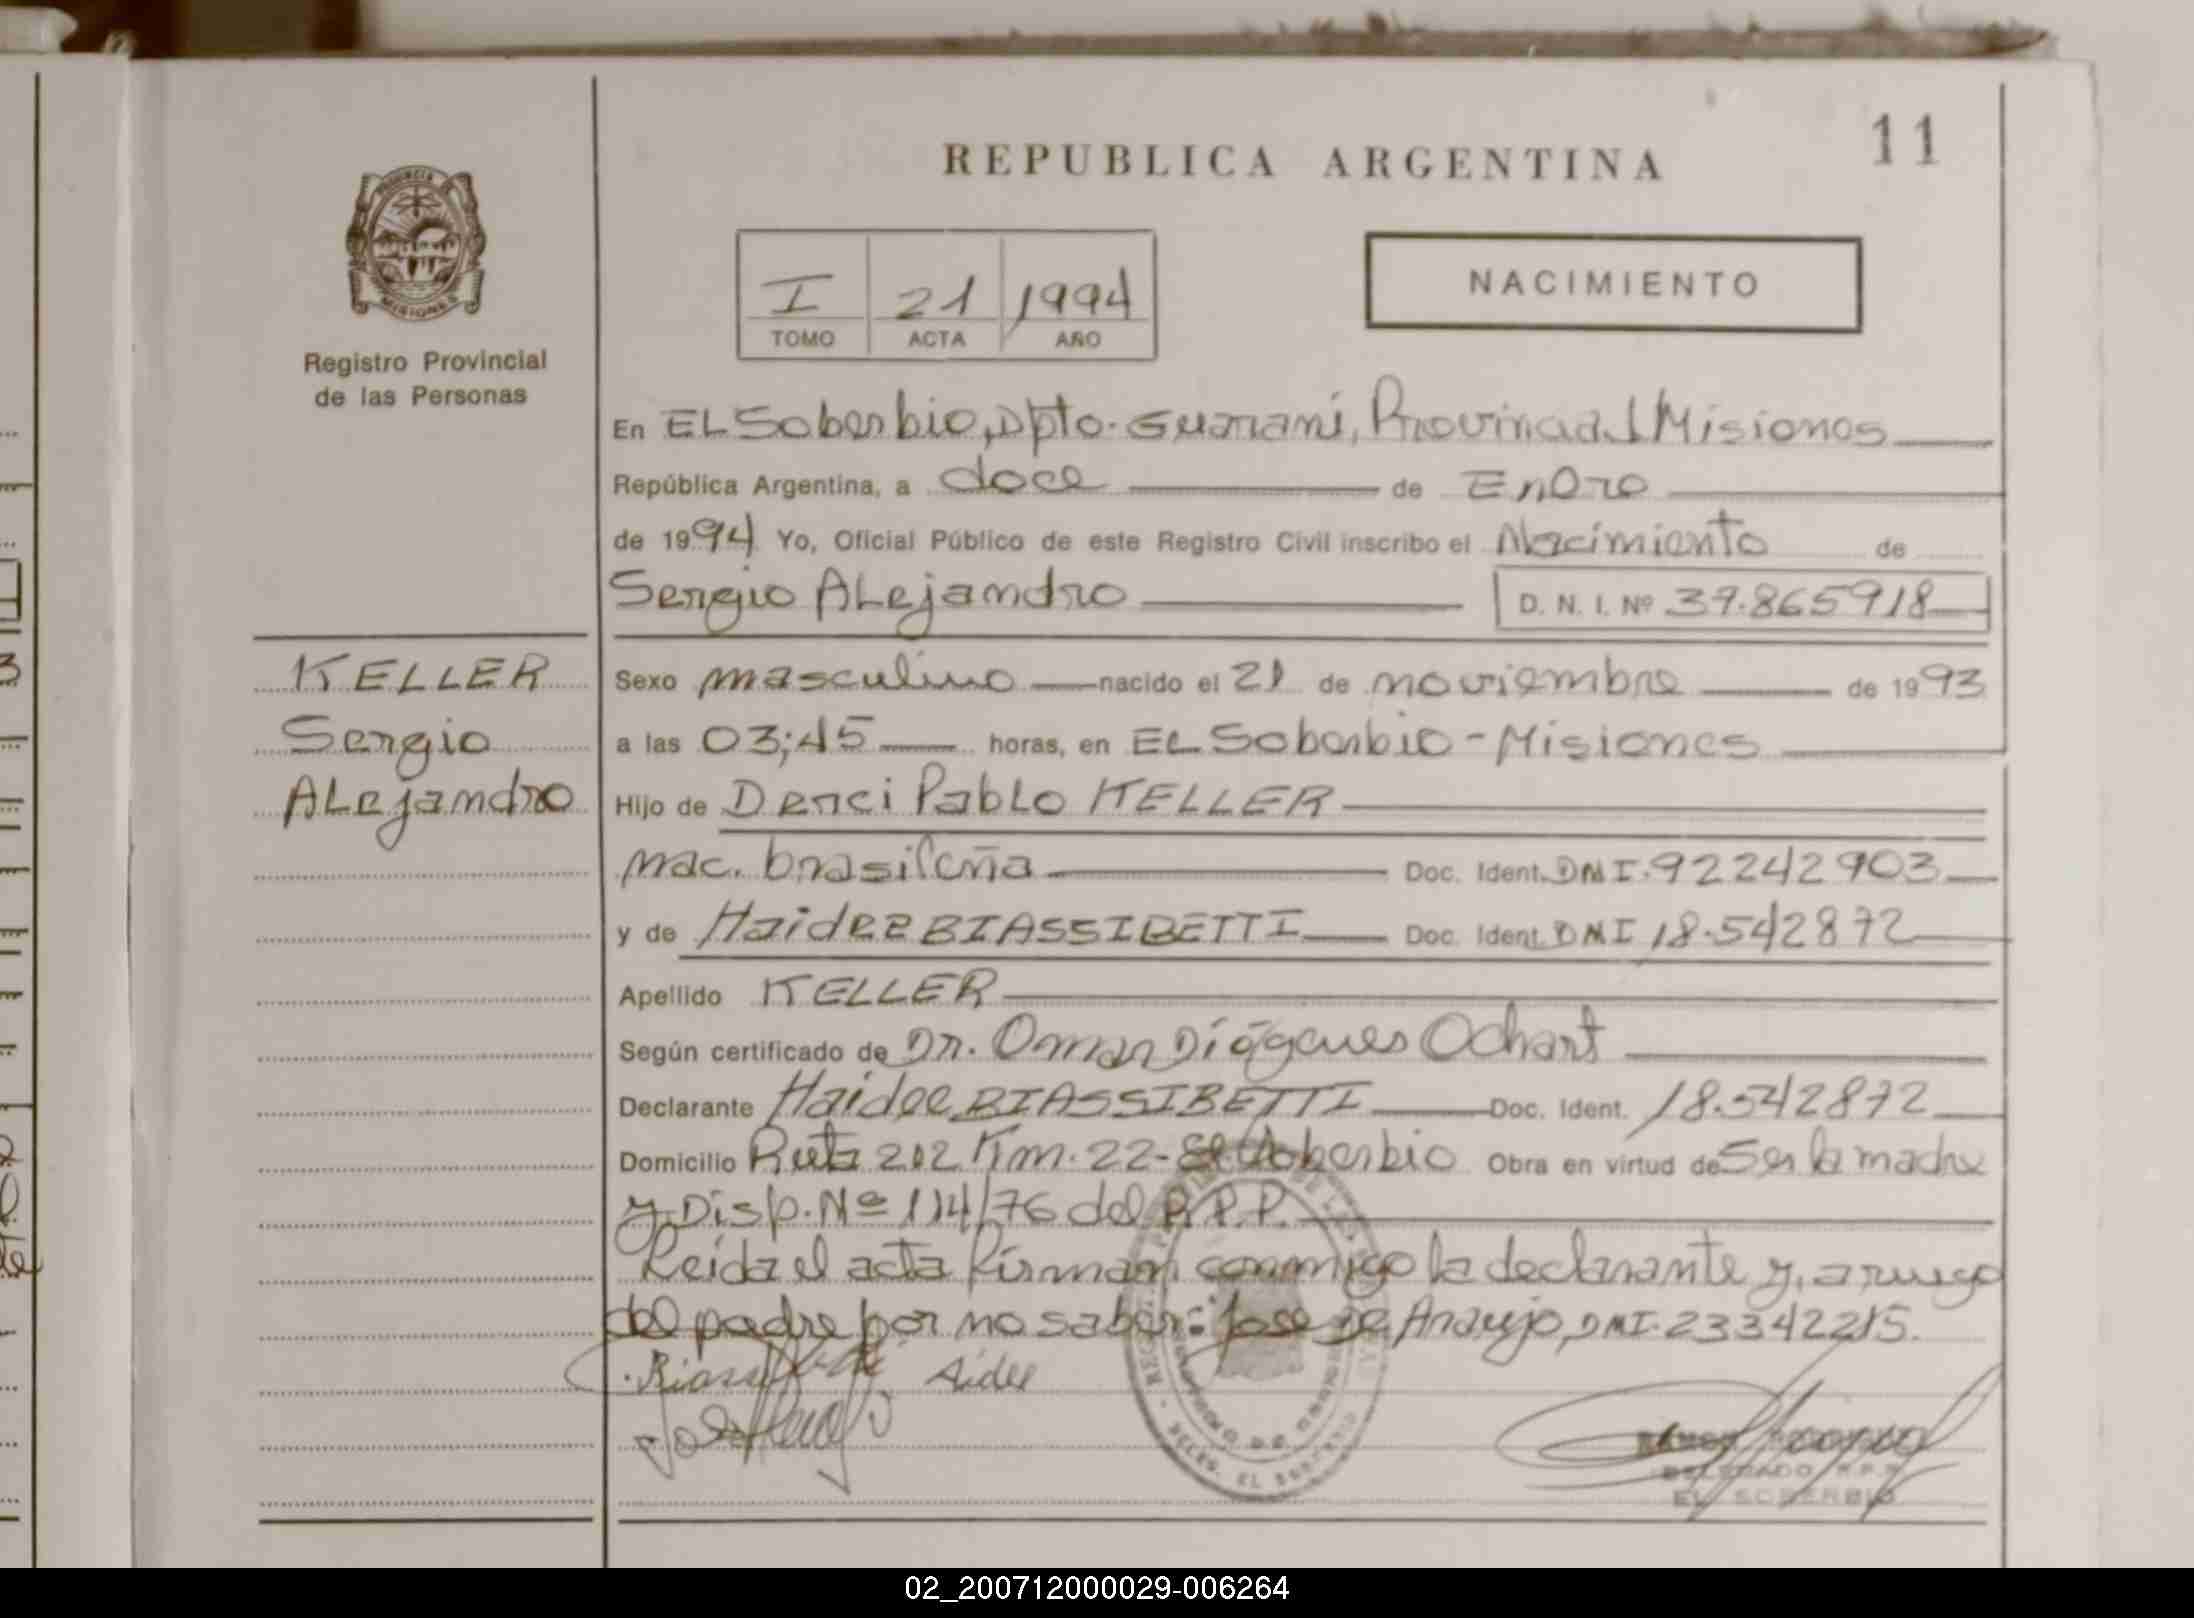 REPUBLICA ARGENTINA
11
PROVINCIA DE
MISIONES
Registro Provincial
de las Personas
I 21 1994
TOMO ACTA AÑO
NACIMIENTO
En EL Soberbio, Dpto. Guaraní, Provincia d Misiones
República Argentina, a doce de Enero
de 1994 Yo, Oficial Público de este Registro Civil inscribo el Nacimiento de
Sergio ALejandro D. N. I. Nº 37.865918
KELLER
Sergio
ALejandro
Sexo masculino nacido el 21 de noviembre de 1993
a las 03;45 horas, en EL Soberbio - Misiones
Hijo de Derci PabLo KELLER
nac. brasileña Doc. Ident. DNI. 92242903
y de Haidee BIASSIBETTI Doc. Ident. DNI 18.542872
Apellido KELLER
Según certificado de Dr. Omar Diógenes Ochart
Declarante Haidee BIASSIBETTI Doc. Ident. 18.542872
Domicilio Ruta 212 Km. 22- El Soberbio Obra en virtud de Ser la madre
y Disp. Nº 114/76 del R.P.P.
Leida el acta firman conmigo la declarante y, a ruego
del padre por no saber: Jose De Araujo, DNI. 23342215.
Aidee
DELEGADO R.P.P.
EL SOBERBIO
02_200712000029-006264